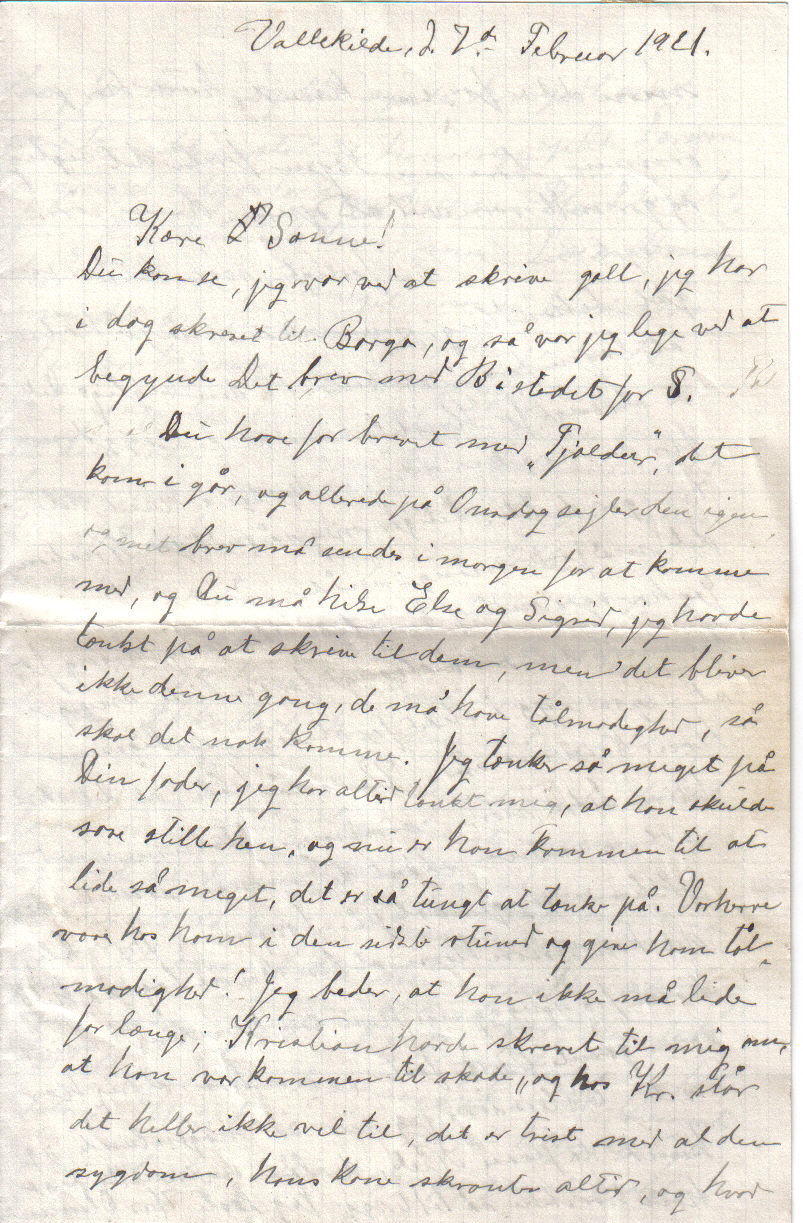 Vallekilde, d. 7de Februar 1921.
Kære Sanne!
Du kan se, jeg var ved at skrive galt, jeg har
i dag skrevet til Barga, og så var jeg lige ved at
begynde Det brev med B istedet for S.
Du have for brevet med "Tjaldur", det
kom i går, og allerede på Onsdag sejler den igen,
og mit brev må sendes i morgen for at komme
med, og Du må hilse Else og Sigrid, jeg havde
tænkt på at skrive til dem, men det bliver
ikke denne gang, de må have tålmodighed, så
skal det nok komme. Jeg tænker så meget på
Din fader, jeg har altid tænkt mig, at han skulde
sove stille hen, og nu er han kommen til at
lide så meget, det er så tungt at tænke på. Vorherre
være hos ham i den sidste stund og give ham tål-
modighed! Jeg beder, at han ikke må lide
for længe; Kristian havde skrevet til mig om,
at han var kommen til skade, og hos Kr. står
det heller ikke vel til, det er trist med al den
sygdom, hans kone skranter altid, og hvad